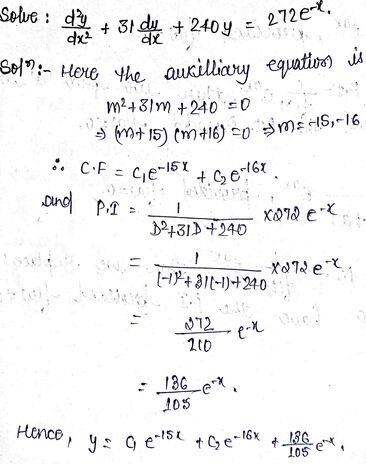 Solve : d²y/dx² + 31 dy/dx + 240 y = 272e^-x.
Solⁿ:- Here the auxilliary equation is
m²+31m+240=0
⇒ (m+15)(m+16)=0 ⇒ m=-15,-16
∴ C.F = C₁e^-15x + C₂e^-16x.
and P.I = 1/(D²+31D+240) ×272 e^-x
= 1/((-1)²+31(-1)+240) ×272 e^-x
= 272/210 e^-x
= 136/105 e^-x.
Hence, y = C₁ e^-15x + C₂ e^-16x + 136/105 e^-x.